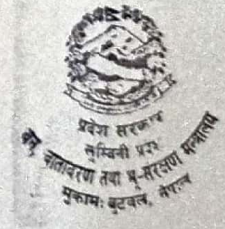 प्रदेश सरकार
लुम्बिनी प्रदेश
वन, वातावरण तथा भू-संरक्षण मन्त्रालय
मुकामः बुटवल, नेपाल